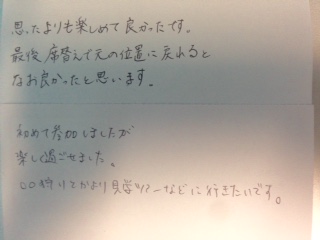 思ったよりも楽しめて良かったです。
最後席替えで元の位置に戻れると
なお良かったと思います。
初めて参加しましたが
楽しく過ごせました。
○○狩りとかより見学ツアーなどに行きたいです。